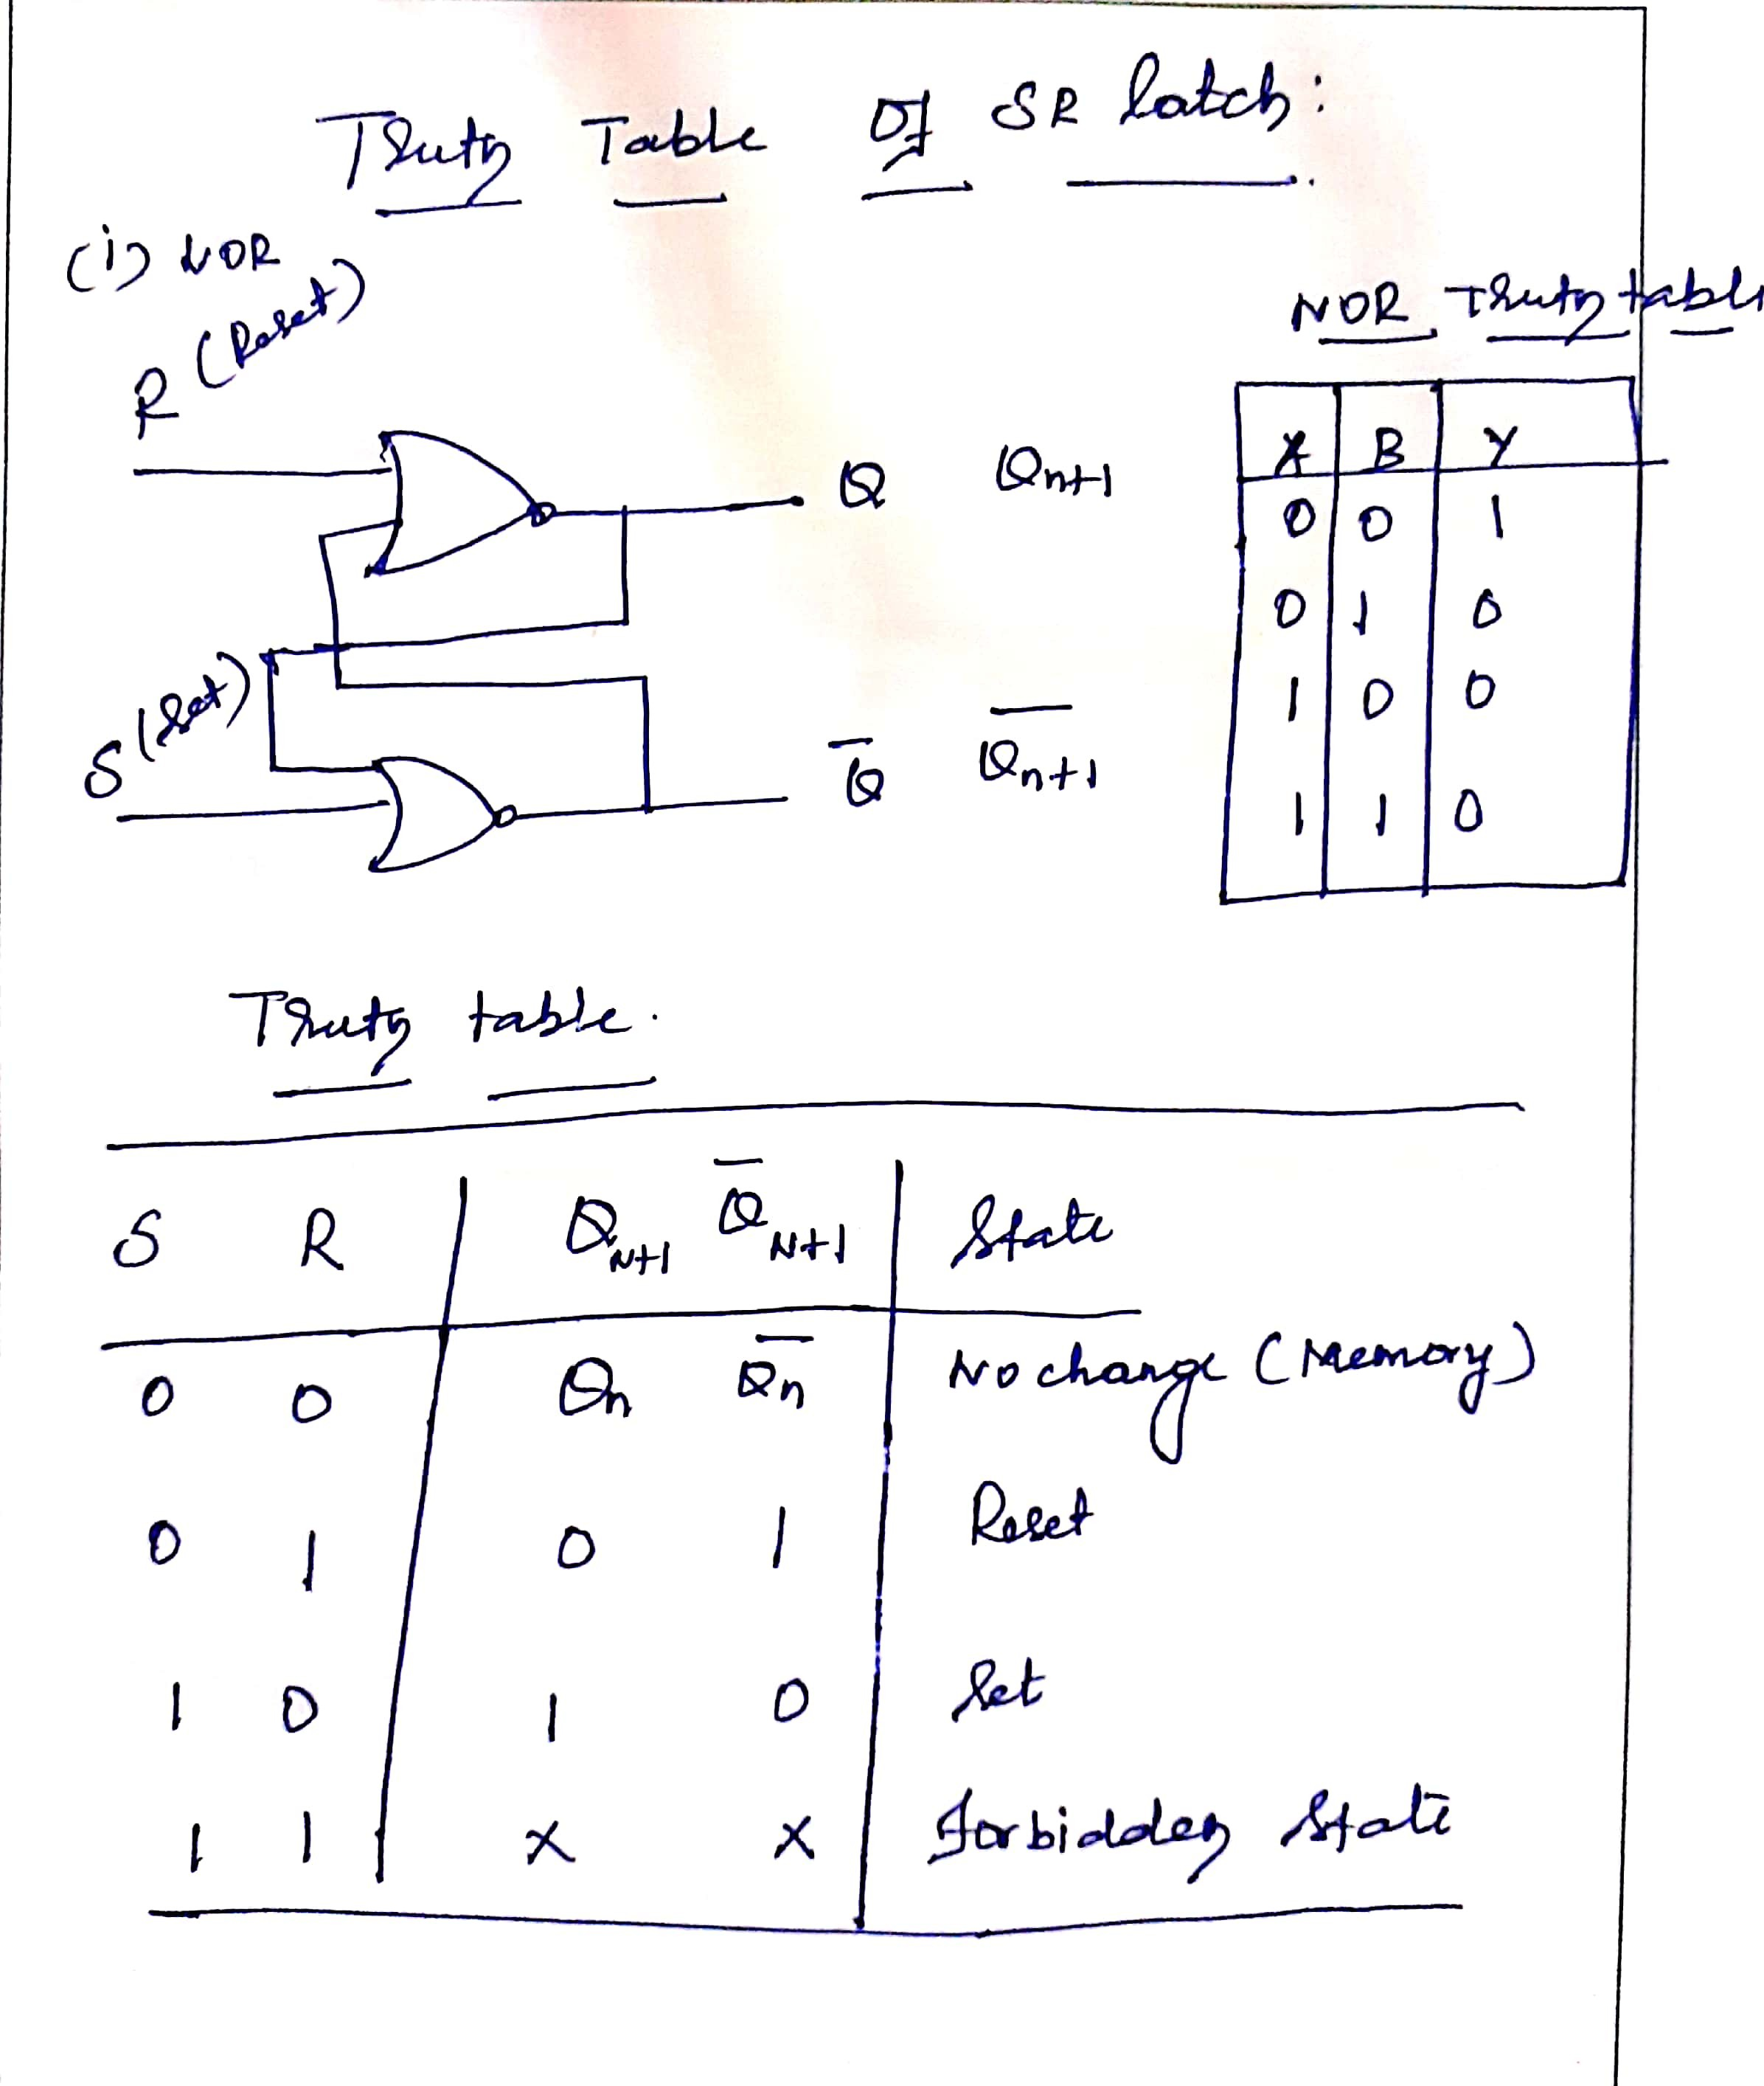 Truth Table Of SR latch:
(i) NOR
R (Reset)
NOR Truth table
Q Qn+1
A B Y
0 0 1
0 1 0
1 0 0
1 1 0
S (Set)
Q̅ Q̅n+1
Truth table.
S R QN+1 Q̅N+1 State
0 0 Qn Q̅n No change (Memory)
0 1 0 1 Reset
1 0 1 0 Set
1 1 X X forbidden State